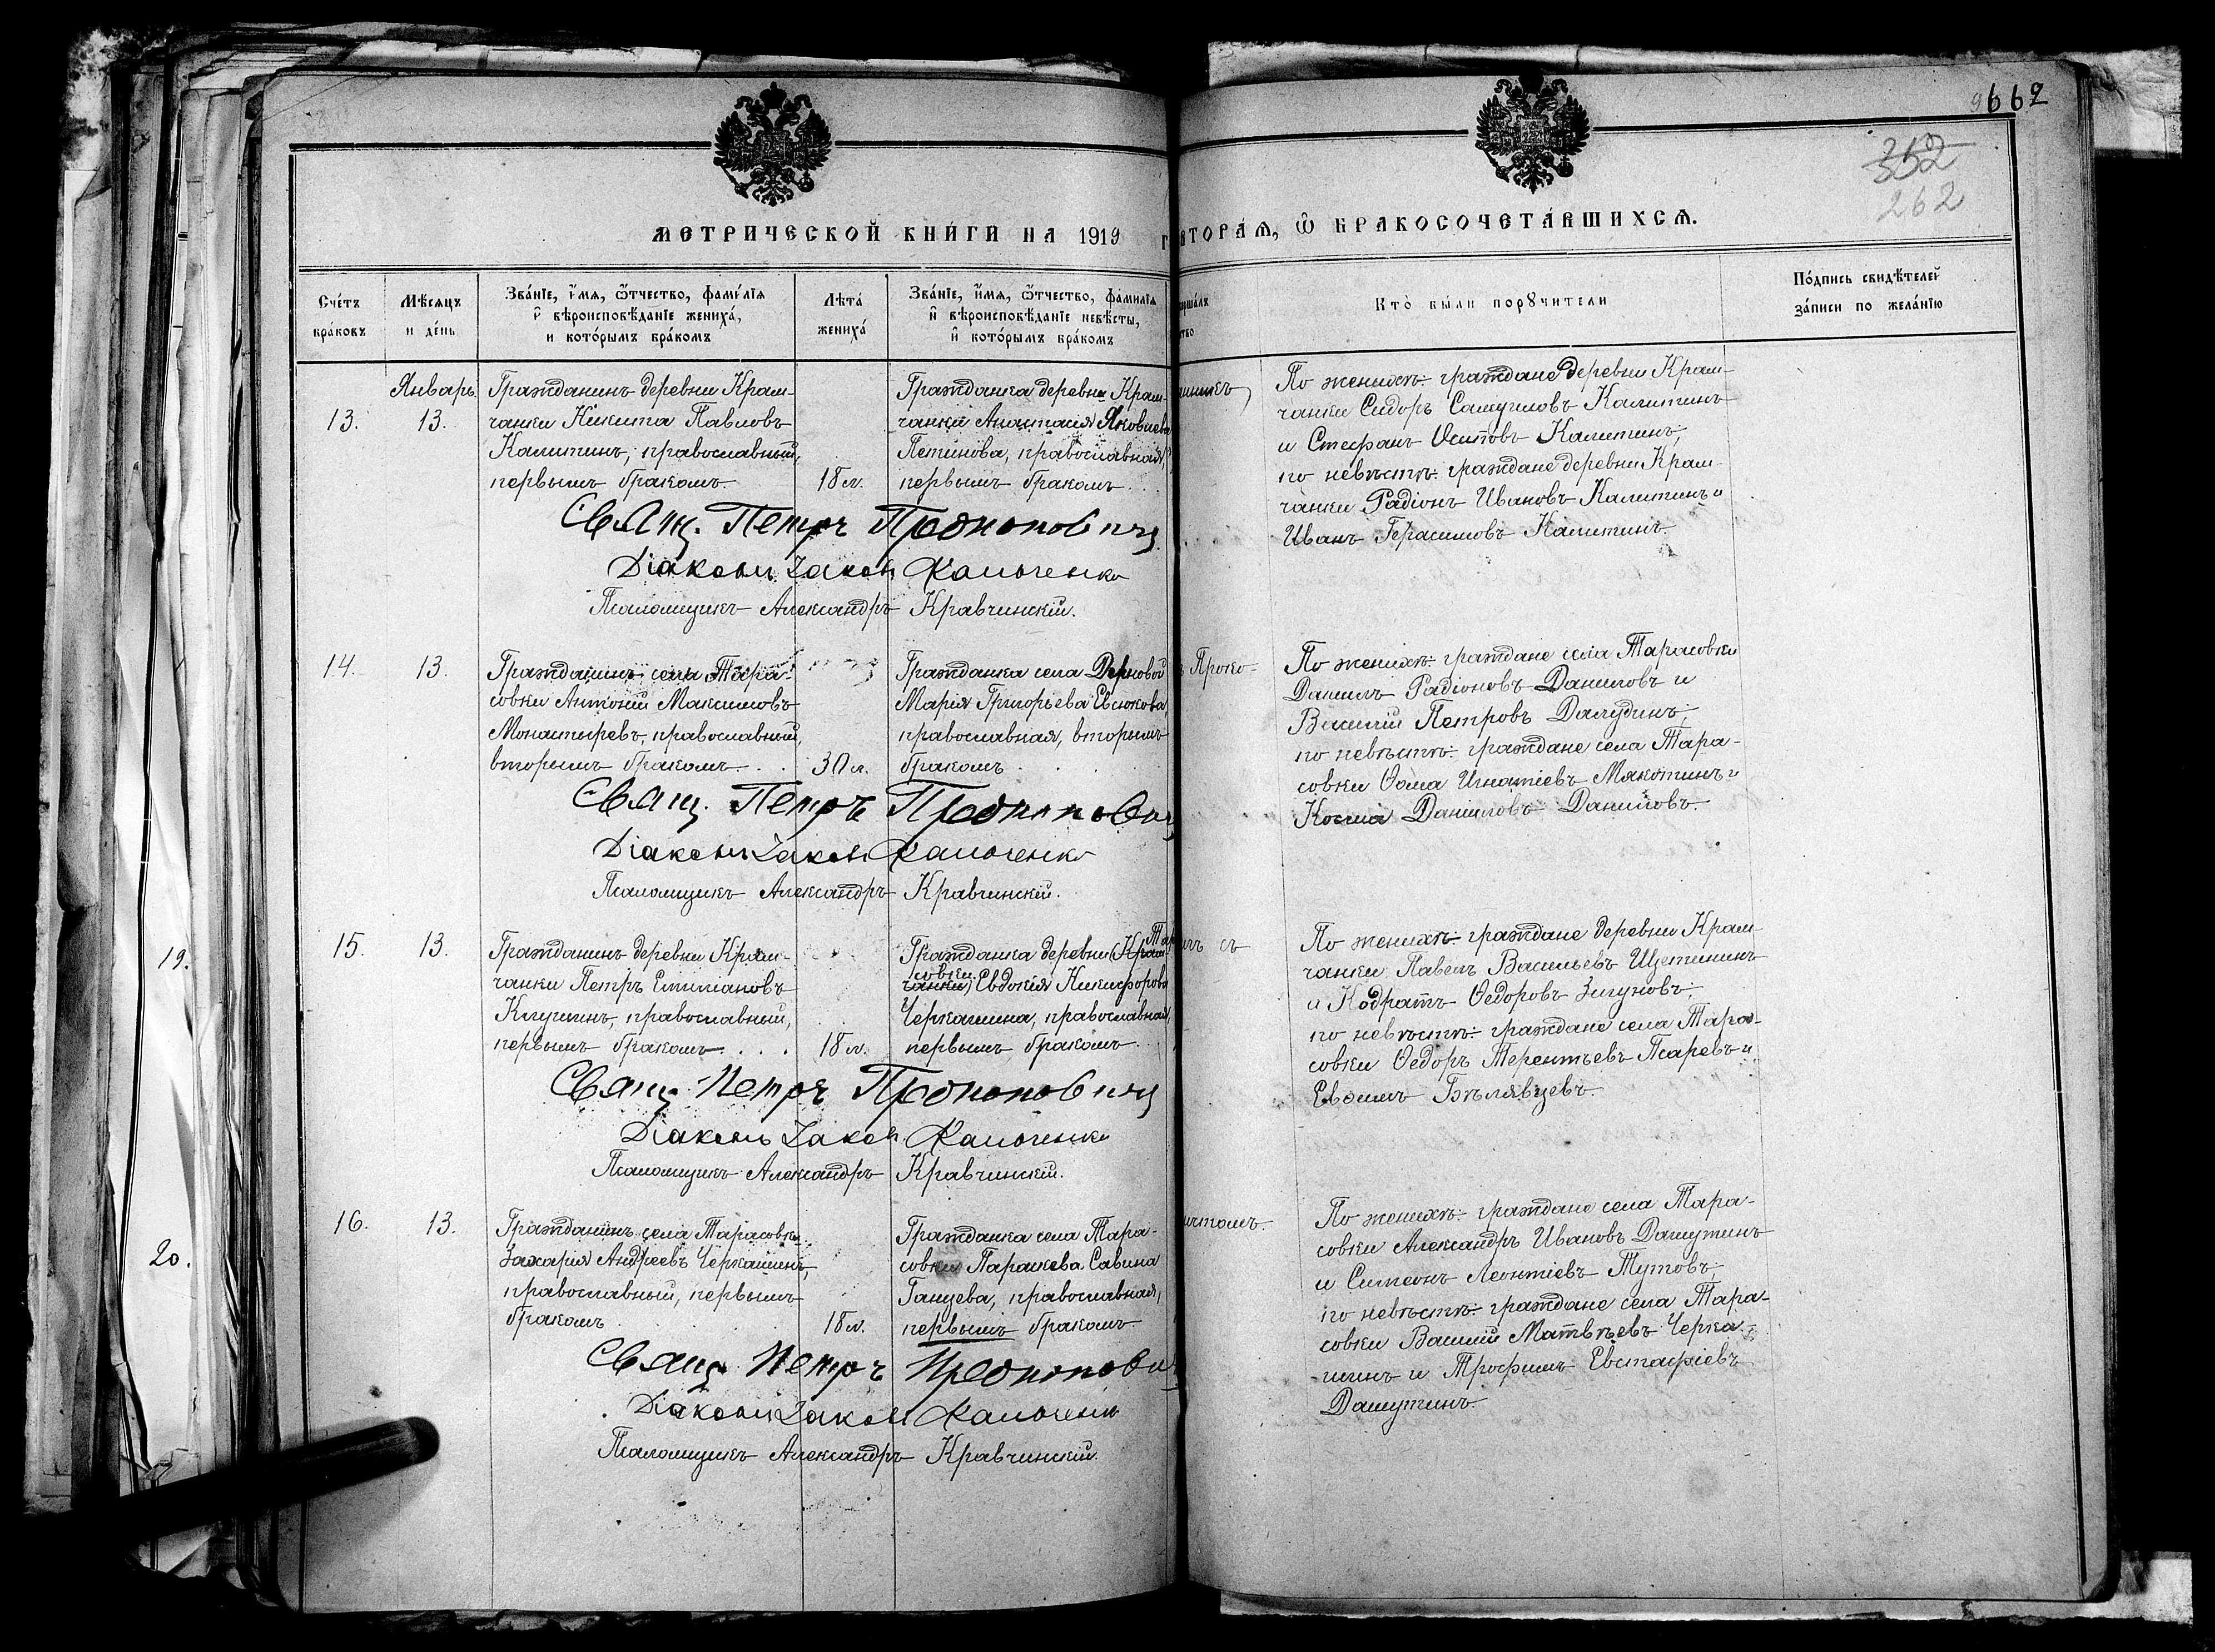 662
352
262
МЕТРИЧЕСКОЙ КНИ́ГИ НА 1919
ВТОРА́Ѧ, Ѿ БРАКОСОЧЕТА́ВШИХСѦ.
Сче́тъ бра́ковъ
Мѣ́сяцъ и де́нь
Зва́нїе, и҆́мя, ѻ҆́тчество, фами́лїя
и҆ вѣроисповѣ́данїе жениха́,
и кото́рымъ бра́комъ
Лѣ́та жениха́
Зва́нїе, и҆́мя, ѻ҆́тчество, фами́лїя
и҆ вѣроисповѣ́данїе невѣ́сты,
и҆ кото́рымъ бра́комъ
Кто̀ бы́ли порꙋчи́тели
По́дпись свидѣ́телей
за́писи по жела́нїю
Январь
13.
13.
Гражданинъ деревни Крам-
чанки Никита Павловъ
Калитинъ, православный,
первымъ бракомъ.
18 л.
Гражданка деревни Крам-
чанки Анастасія Яковлева
Петинова, православная,
первымъ бракомъ.
По женихѣ: граждане деревни Крам-
чанки Сидоръ Самуиловъ Калитинъ
и Стефанъ Осиповъ Калитинъ;
по невѣстѣ: граждане деревни Крам-
чанки Радіонъ Ивановъ Калитинъ и
Иванъ Герасимовъ Калитинъ.
Свящ. Петръ Продпоповичъ
Діаконъ Іаковъ Калюченко
Псаломщикъ Александръ Кравчинскій.
14.
13.
Гражданинъ села Тара-
совки Антоній Максимовъ
Монастыревъ, православный,
вторымъ бракомъ.
30 л.
Гражданка села Дерновой
Марія Григорьева Евсюкова,
православная, вторымъ
бракомъ
Проко-
По женихѣ: граждане села Тарасовки
Даніилъ Радіоновъ Даниловъ и
Василій Петровъ Далудинъ;
по невѣстѣ: граждане села Тара-
совки Ѳома Игнатіевъ Мякотинъ и
Косма Даниловъ Даниловъ.
Свящ. Петръ
Діаконъ Іаковъ Калюченко
Псаломщикъ Александръ Кравчинскій.
15.
13.
Гражданинъ деревни Крам-
чанки Петръ Емиліановъ
Клушинъ, православный,
первымъ бракомъ
18 л.
Гражданка деревни (Крам- Тара
чанки) совки Евдокія Никифорова
Черкашина, православная,
первымъ бракомъ
съ
По женихѣ: граждане деревни Крам-
чанки Павелъ Васильевъ Щетининъ
и Кодратъ Ѳедоровъ Зигуновъ;
по невѣстѣ: граждане села Тара-
совки Ѳедоръ Терентьевъ Псаревъ и
Евѳимъ Бѣлявцевъ.
Свящ. Петръ
Діаконъ Іаковъ Калюченко
Псаломщикъ Александръ Кравчинскій.
16.
13.
Гражданинъ села Тарасовки
Захарія Андреевъ Черкашинъ,
православный, первымъ
бракомъ
18 л.
Гражданка села Тара-
совки Параскева Савина
Ганцева, православная,
первымъ бракомъ
По женихѣ: граждане села Тара-
совки Александръ Ивановъ Дашутинъ
и Симеонъ Леонтіевъ Тутовъ;
по невѣстѣ: граждане села Тара-
совки Василій Матвѣевъ Черка-
шинъ и Трофимъ Евстафіевъ
Дашутинъ.
Свящ. Петръ
Діаконъ Іаковъ Калюченко
Псаломщикъ Александръ Кравчинскій.
19.
20.